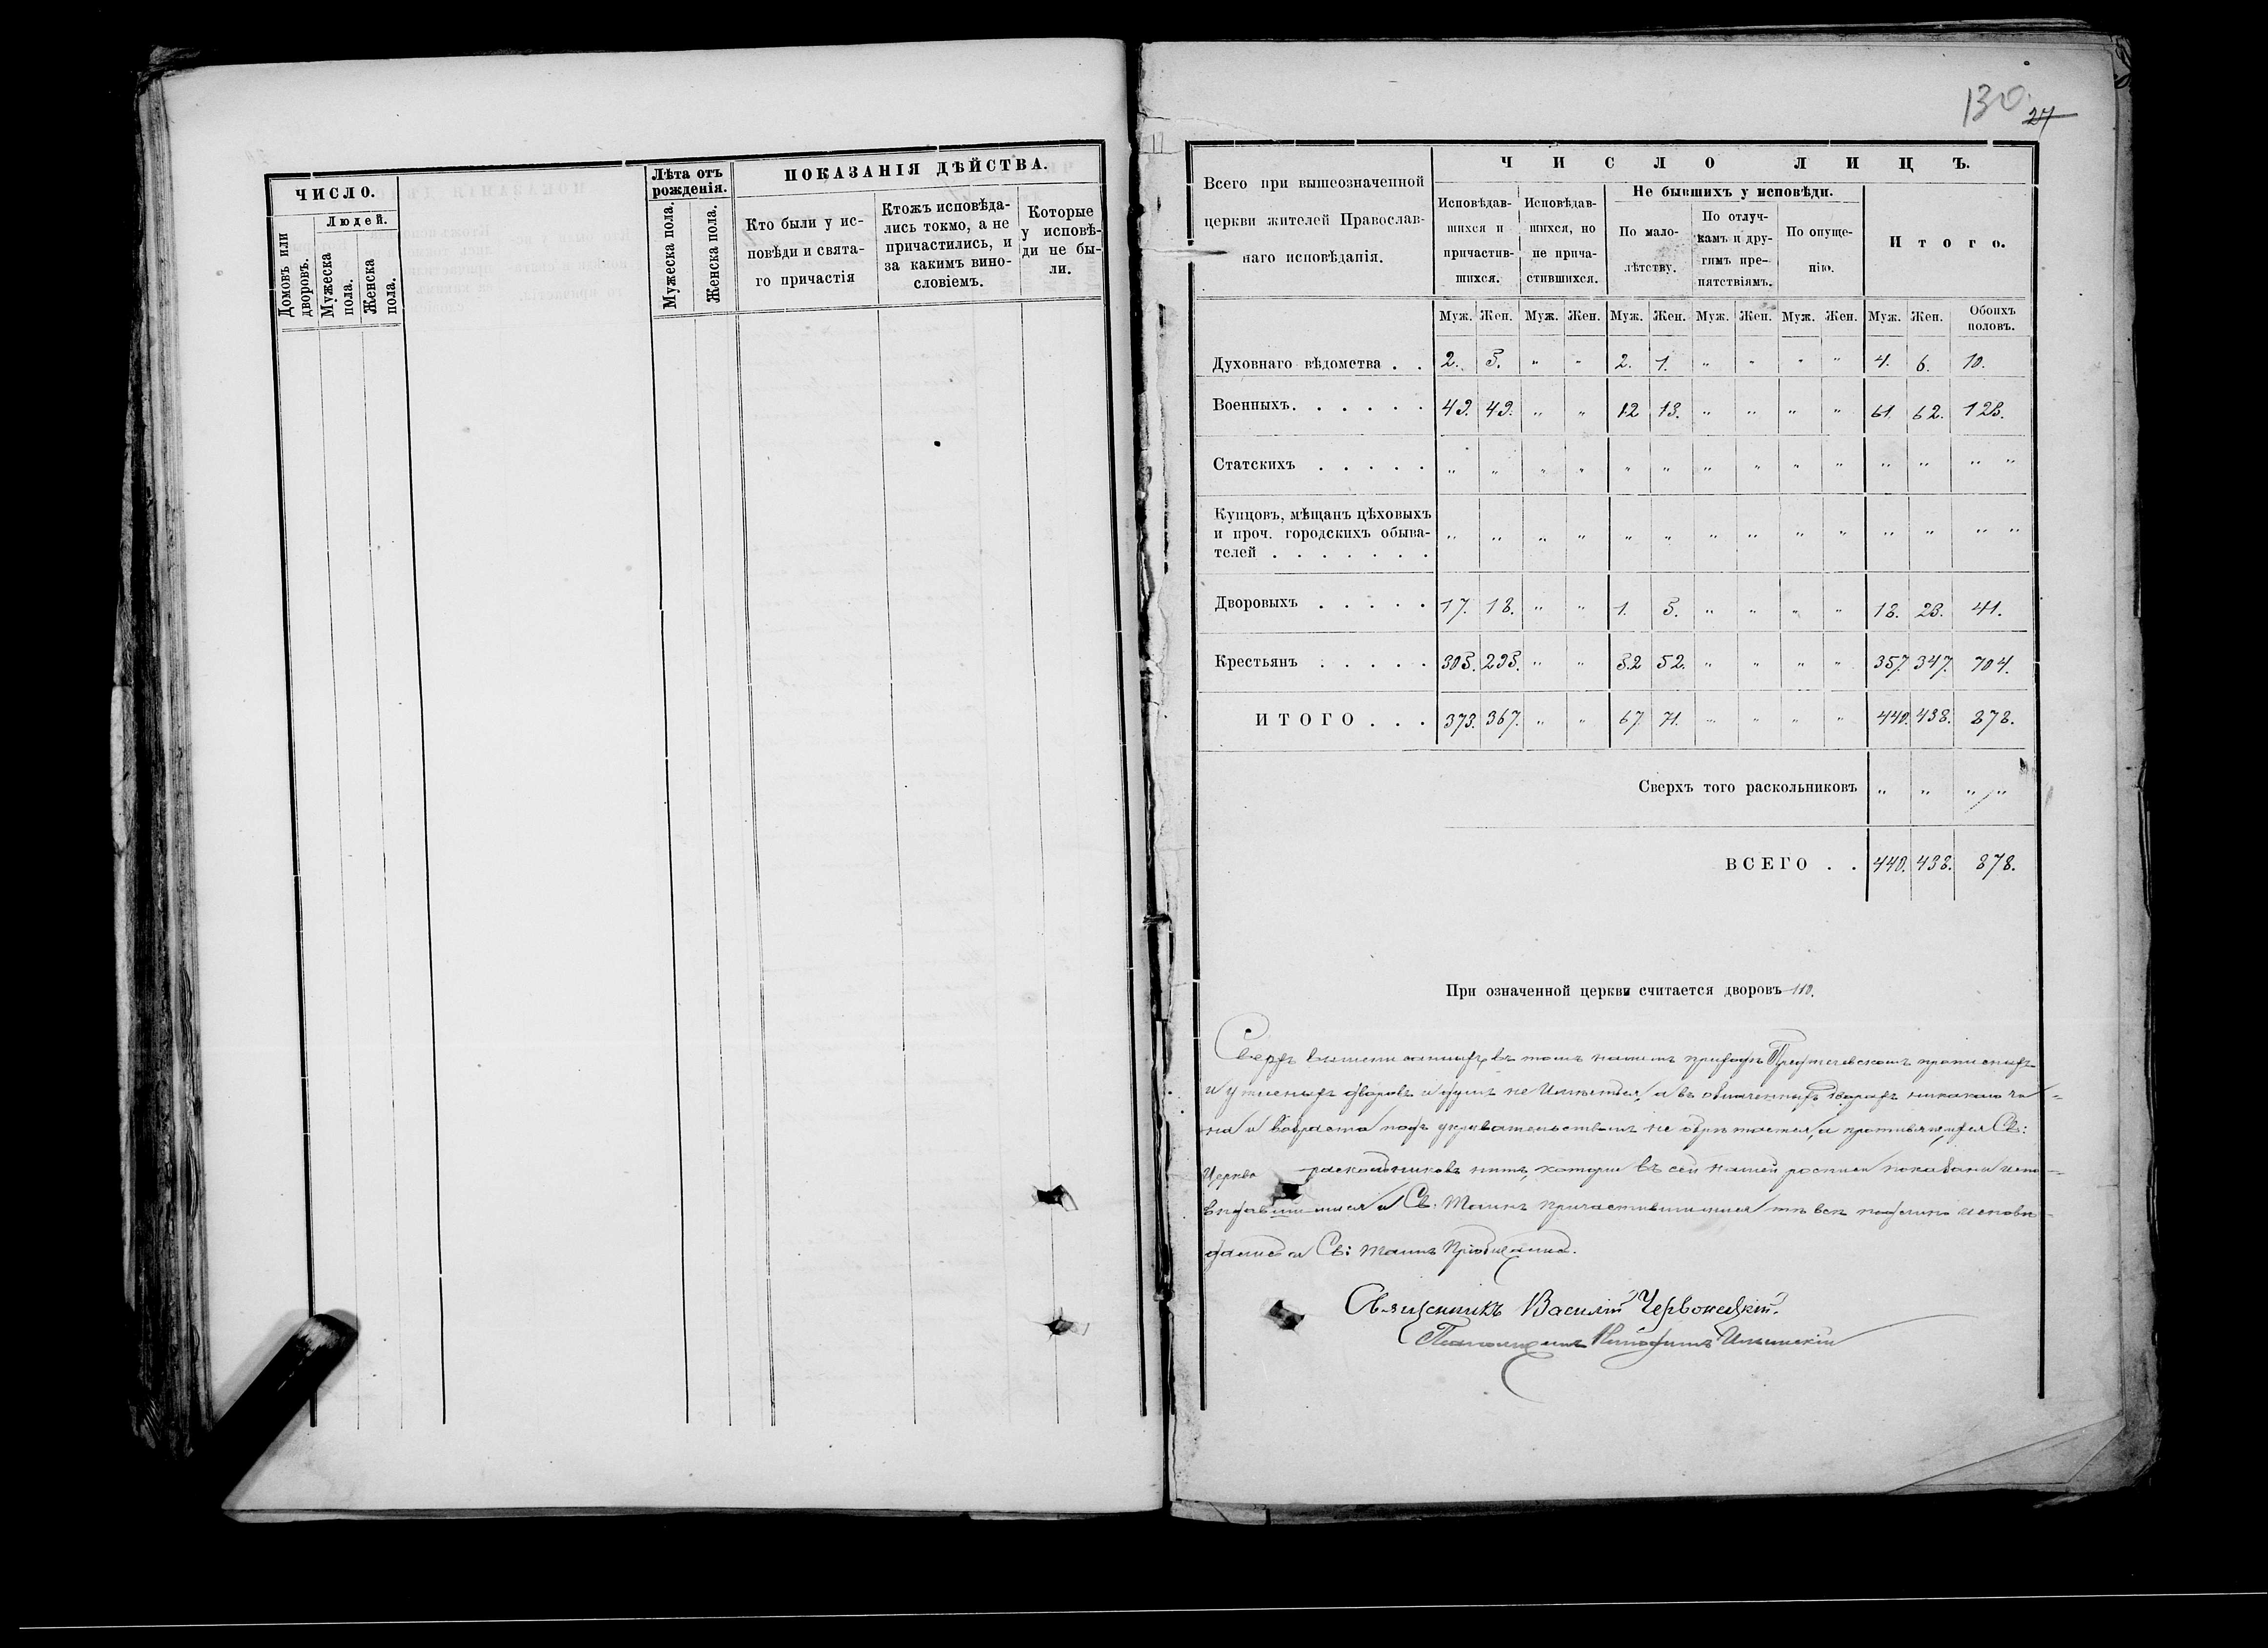 ЧИСЛО.
Людей.
Домовъ или дворовъ.
Мужеска пола.
Женска пола.
Лѣта отъ рожденія.
Мужеска пола.
Женска пола.
ПОКАЗАНІЯ ДѢЙСТВА.
Кто были у ис-
повѣди и свята-
го причастія
Ктожъ исповѣда-
лись токмо, а не
причастились, и
за какимъ вино-
словіемъ.
Которые
у исповѣ-
ди не бы-
ли.
130.
27
Всего при вышеозначенной
церкви жителей Православ-
наго исповѣданія.
ЧИСЛО ЛИЦЪ.
Исповѣдав-
шихся и
причастив-
шихся.
Исповѣдав-
шихся, но
не прича-
стившихся.
Не бывшихъ у исповѣди.
По мало-
лѣтству.
По отлуч-
камъ и дру-
гимъ пре-
пятствіямъ.
По опуще-
нію.
Итого.
Муж. Жен. Муж. Жен. Муж. Жен. Муж. Жен. Муж. Жен. Муж. Жен. Обоихъ половъ.
Духовнаго вѣдомства . . 2. 5. " " 2. 1. " " " " 4. 6. 10.
Военныхъ. . . . . . 49. 49. " " 12 13. " " " " 61. 62. 123.
Статскихъ . . . . . " " " " " " " " " " " " " "
Купцовъ, мѣщанъ цѣховыхъ
и проч. городскихъ обыва-
телей . . . . . . . " " " " " " " " " " " " " "
Дворовыхъ . . . . . 17. 18. " " 1. 5. " " " " 18. 23. 41.
Крестьянъ . . . . . 305. 295. " " 52 52. " " " " 357. 347. 704.
ИТОГО . . . 373. 367. " " 67. 71. " " " " 440. 438. 878.
Сверхъ того раскольниковъ " " " "
ВСЕГО . . 440. 438. 878.
При означенной церкви считается дворовъ 110.
Сверхъ въ томъ нашемъ приходѣ
и дворовъ и душъ не имѣется, а въ означенныхъ дворахъ никакого чи-
на и возраста подъ укрывательствомъ не обрѣтается, а противящихся Св:
Церкви раскольниковъ нѣтъ, которые въ сей нашей росписи показаны испо-
вѣдавшимися и Св. Таинъ причастившимися тѣ всѣ исповѣ-
дались и Св: Таинъ пріобщались.
Священникъ Василій Червонецкій.
Псаломщикъ